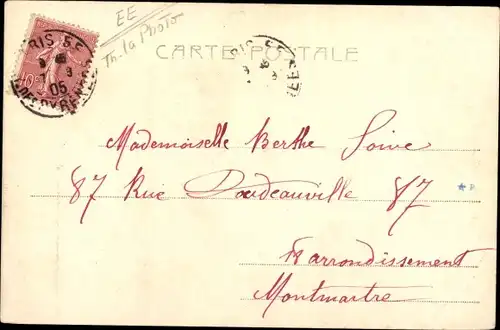 EE
Th. la Photo
CARTE POSTALE
RIS 55
05
PYRENEES
10
Mademoiselle Berthe Soive
87 Rue Doudeauville 87
arrondissement
Montmartre